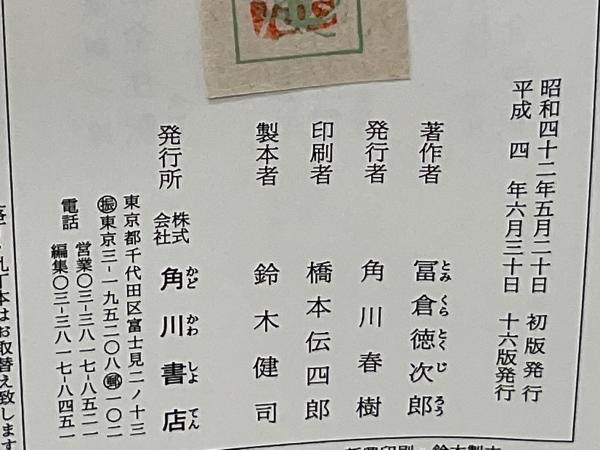 昭和四十二年五月二十日 初版発行
平成 四 年六月三十日 十六版発行
著作者 冨倉徳次郎
とみくらとくじろう
発行者 角川春樹
印刷者 橋本伝四郎
製本者 鈴木健司
発行所 株式会社 角川書店
かどかわしょてん
東京都千代田区富士見二ノ十三
振東京三-一九五二〇八郵一〇二
電話 営業〇三-三八一七-八五二一
編集〇三-三八一七-八四五一
丁本はお取替え致します